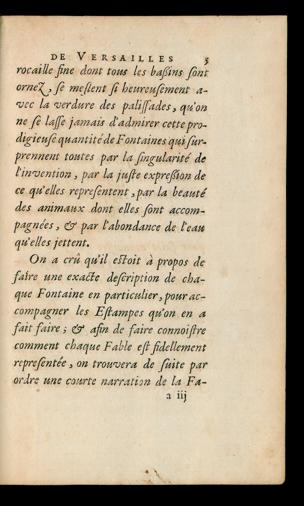 DE VERSAILLES 5
rocaille fine dont tous les baßins sont
ornez, se meslent si heureusement a-
vec la verdure des palissades, qu'on
ne se lasse jamais d'admirer cette pro-
digieuse quantité de Fontaines qui sur-
prennent toutes par la singularité de
l'invention, par la juste expreßion de
ce qu'elles representent, par la beauté
des animaux dont elles sont accom-
pagnées, & par l'abondance de l'eau
qu'elles jettent.
On a crû qu'il estoit à propos de
faire une exacte description de cha-
que Fontaine en particulier, pour ac-
compagner les Estampes qu'on en a
fait faire ; & afin de faire connoistre
comment chaque Fable est fidellement
representée, on trouvera de suite par
ordre une courte narration de la Fa-
a iij